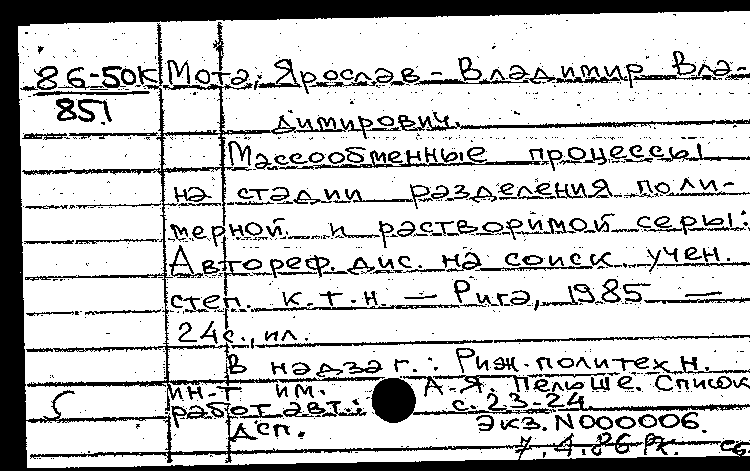 86-50К Мота, Ярослав-Владимир Вла-
851
димирович.
Массообменные процессы
на стадии разделения поли-
мерной и растворимой серы:
Автореф. дис. на соиск. учен.
степ. к.т.н. — Рига, 1985 —
24 с., ил.
В надзаг.: Риж. политехн.
ин-т им. А.Я. Пельше. Список
работ авт.: с. 23-24.
Дсп. Экз. N000006.
7.4.86